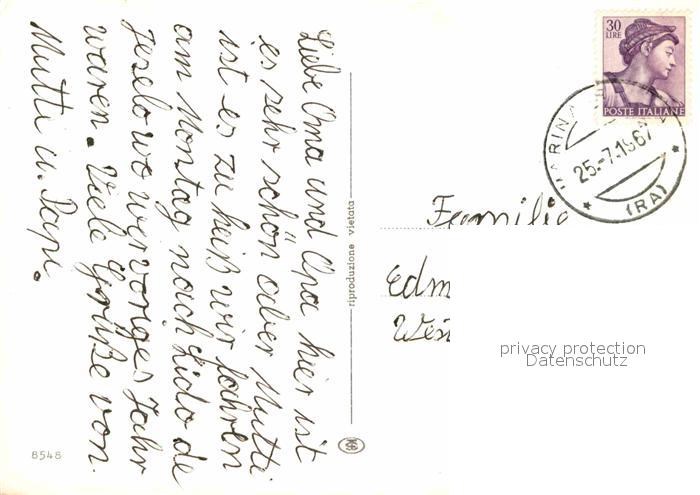 Liebe Oma und Opa hier ist
es sehr schön aber Mutti
ist es zu heiß wir fahren
am Montag noch Lido de
Jeselo wo wir voriges Jahr
waren. Viele Grüße von
Mutti u. Papi.
8548
riproduzione vietata
30
LIRE
POSTE ITALIANE
MARINA
25.-7.1967
(RA)
Familie
Edm
Wei
privacy protection
Datenschutz